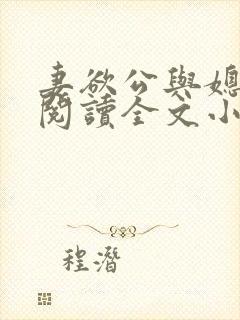 妻欲公與媳
閱讀全文小
程潛